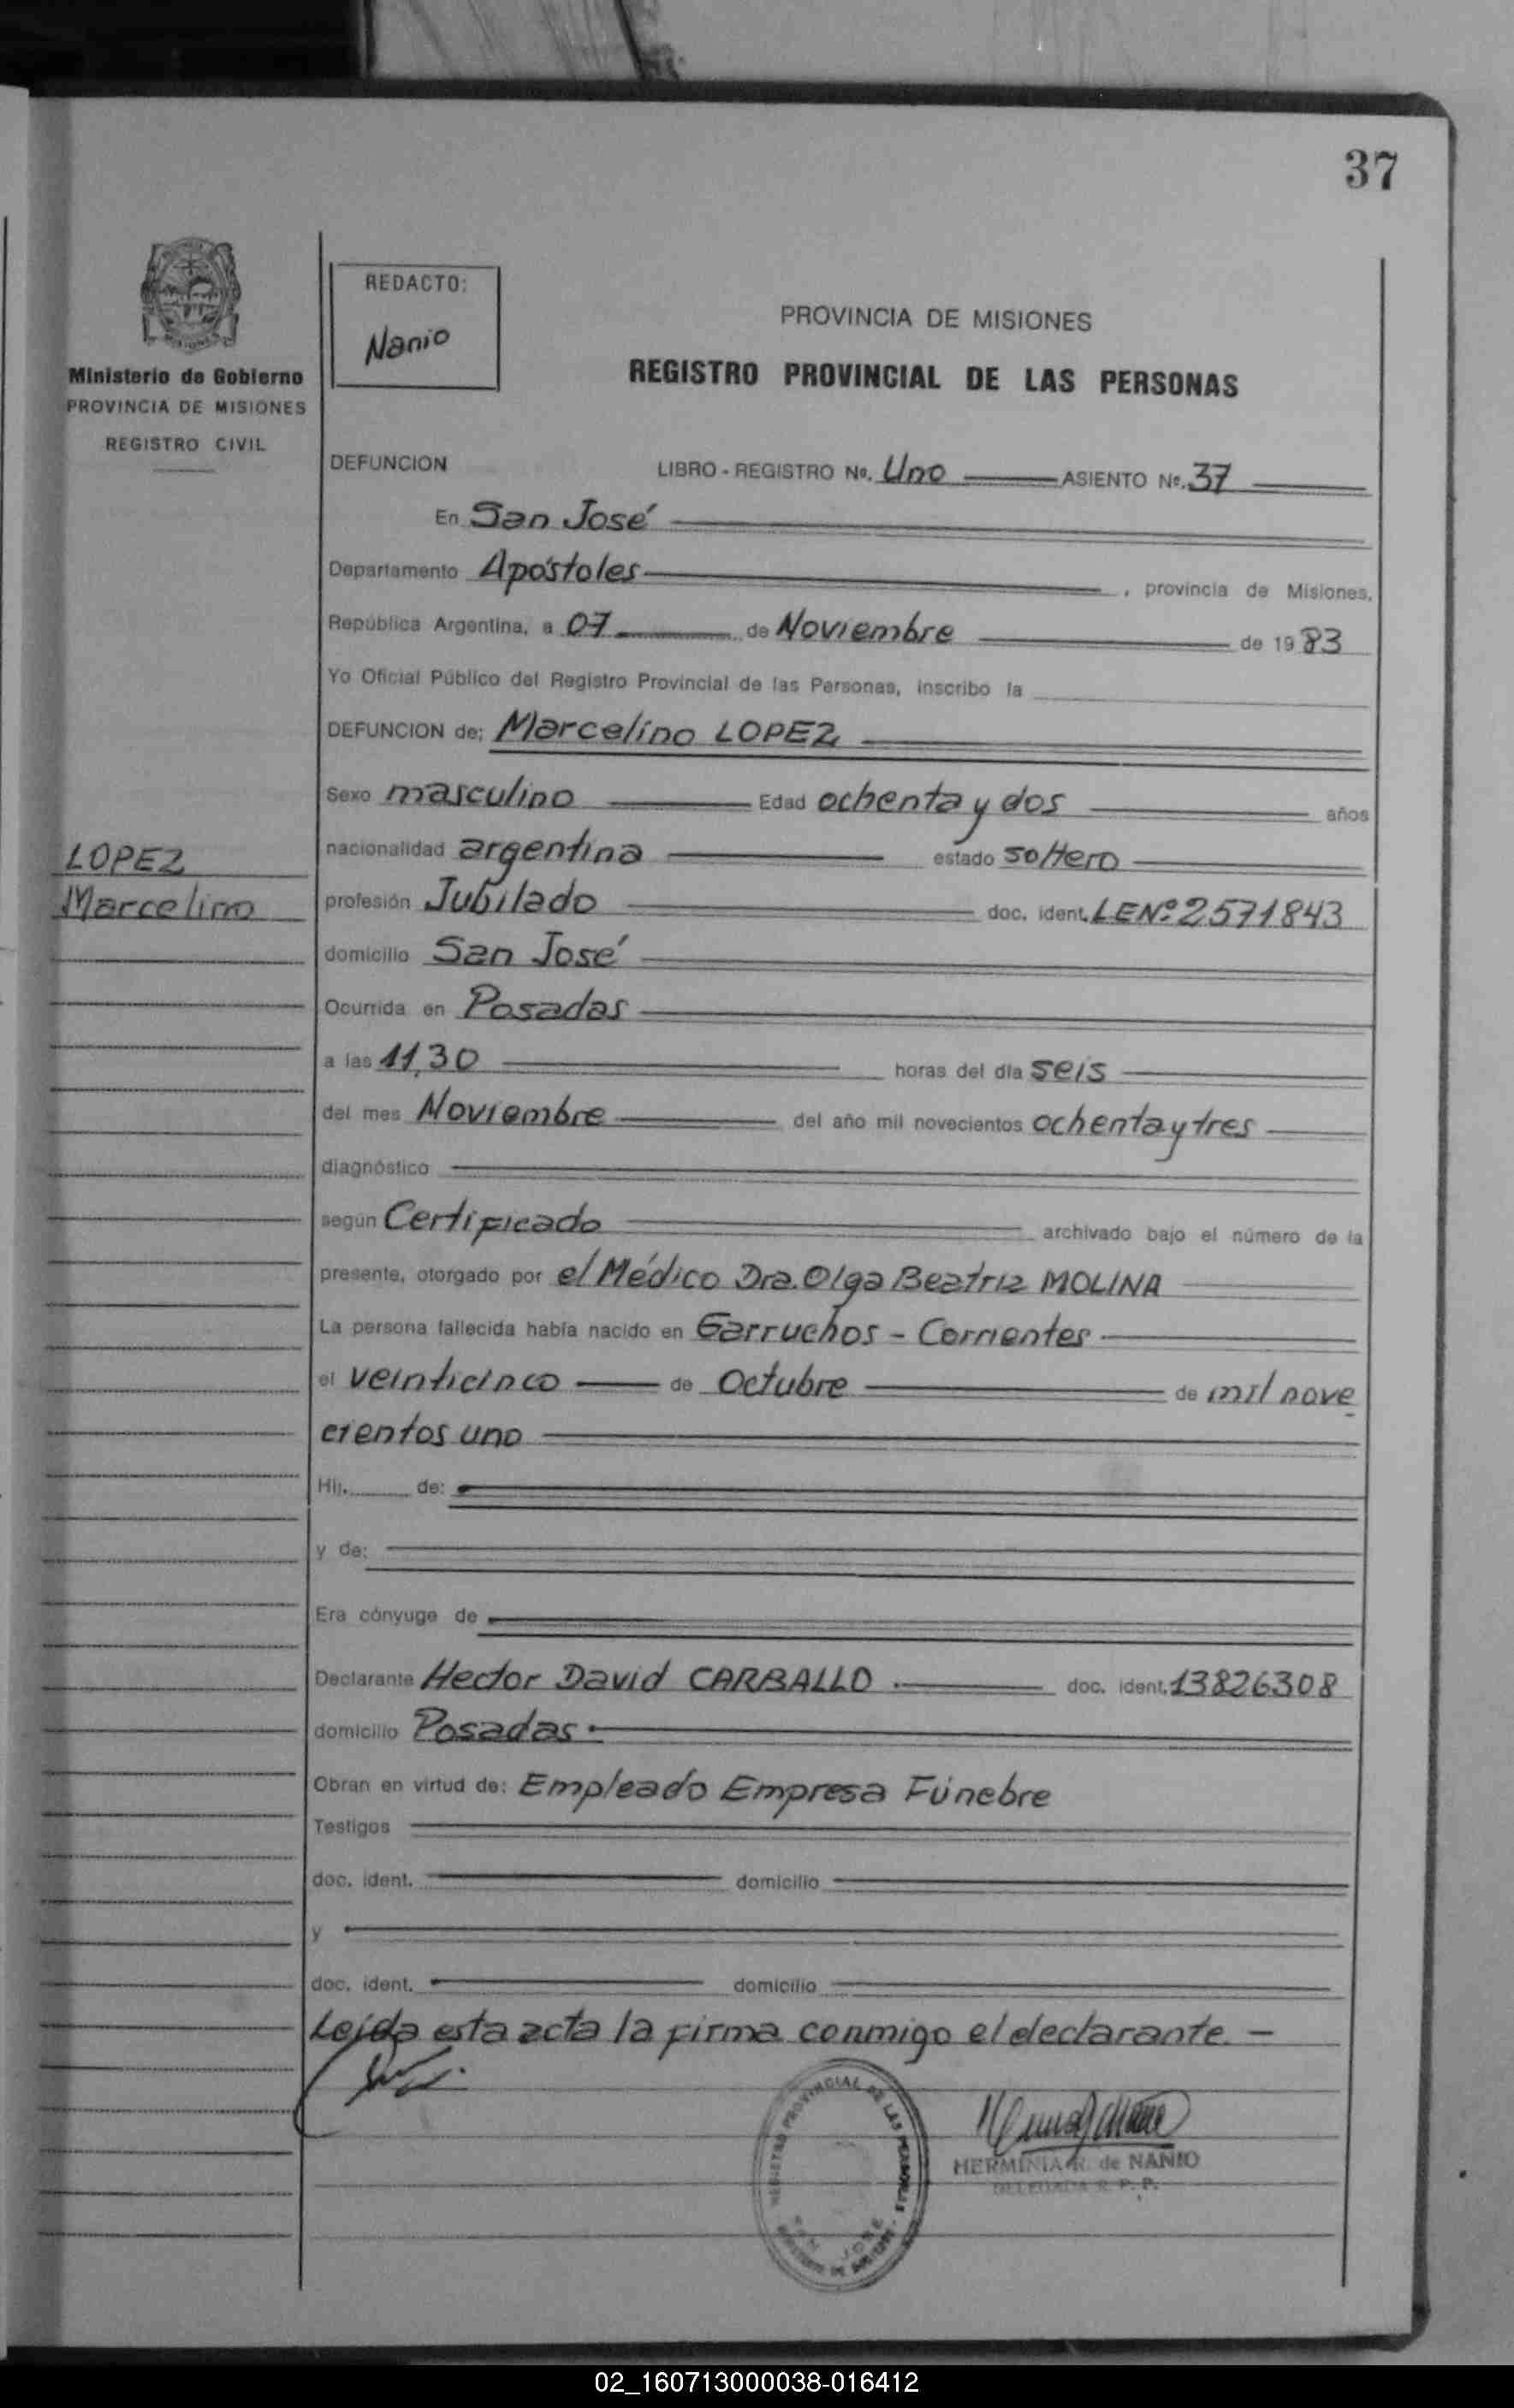 37
REDACTO:
Nanio
Ministerio de Gobierno
PROVINCIA DE MISIONES
REGISTRO CIVIL
PROVINCIA DE MISIONES
REGISTRO PROVINCIAL DE LAS PERSONAS
DEFUNCION LIBRO - REGISTRO No. Uno ASIENTO No. 37
En San José
Departamento Apóstoles, provincia de Misiones,
República Argentina, a 07 de Noviembre de 1983
Yo Oficial Público del Registro Provincial de las Personas, inscribo la
DEFUNCION de: Marcelino LOPEZ
Sexo masculino Edad ochenta y dos años
LOPEZ
Marcelino
nacionalidad argentina estado soltero
profesión Jubilado doc. ident. LENº 2571843
domicilio San José
Ocurrida en Posadas
a las 11,30 horas del día seis
del mes Noviembre del año mil novecientos ochenta y tres
diagnóstico
según Certificado archivado bajo el número de la
presente, otorgado por el Médico Dra. Olga Beatriz MOLINA
La persona fallecida había nacido en Garruchos - Corrientes
el veinticinco de Octubre de mil nove
cientos uno
Hij. de:
y de:
Era cónyuge de
Declarante Hector David CARBALLO doc. ident. 13826308
domicilio Posadas
Obran en virtud de: Empleado Empresa Fúnebre
Testigos
doc. ident. domicilio
y
doc. ident. domicilio
Leída esta acta la firma conmigo el declarante. -
REGISTRO PROVINCIAL DE LAS PERSONAS
SAN JOSE
HERMINIA R. de NANIO
DELEGADA R. P. P.
02_160713000038-016412